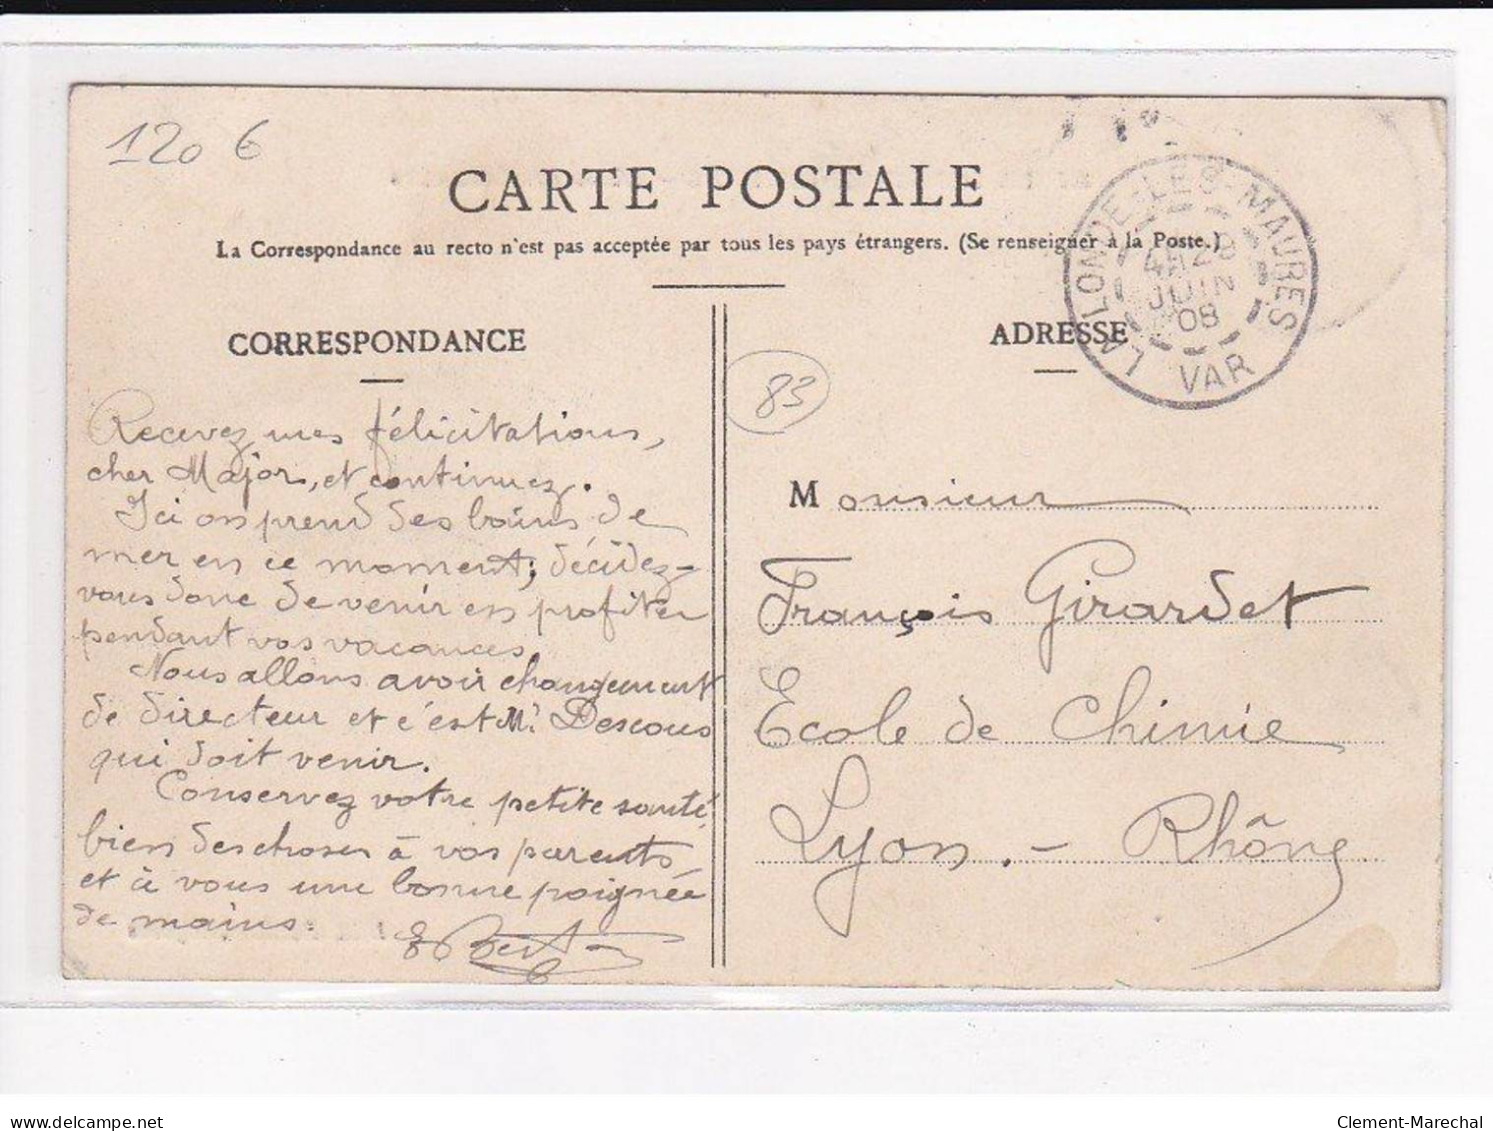 120 €
CARTE POSTALE
La Correspondance au recto n'est pas acceptée par tous les pays étrangers. (Se renseigner à la Poste.)
LA LONDE-LES-MAURES
4H 28
JUIN
08
VAR
CORRESPONDANCE
ADRESSE
83
Recevez mes félicitations,
cher Major, et continuez.
Ici on prend des bains de
mer en ce moment; décidez-
vous donc de venir en profiter
pendant vos vacances.
Nous allons avoir changement
de directeur et c'est Mr. Descous
qui doit venir.
Conservez votre petite santé,
bien des choses à vos parents
et à vous une bonne poignée
de mains.
Monsieur
François Girardet
Ecole de Chimie
Lyon. - Rhône
delcampe.net
Clement-Marechal